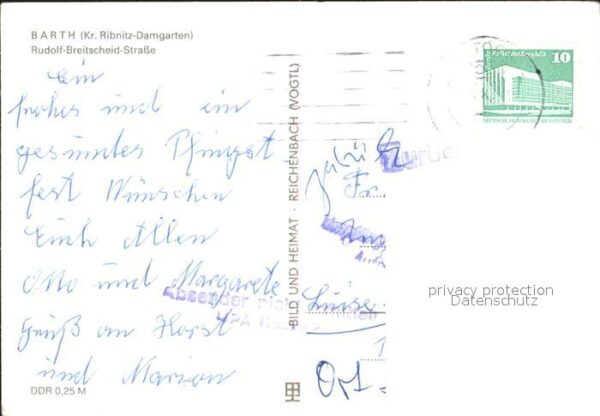 BARTH (Kr. Ribnitz-Damgarten)
Rudolf-Breitscheid-Straße
Ein
frohes und ein
gesundes Pfingst
fest Wünschen
Euch Allen
Otto und Margarete
Gruß an Horst
und Marion
DDR 0,25 M
BILD UND HEIMAT · REICHENBACH (VOGTL)
10
zurück
Zurück
Fr
Absender nicht
Luise
Ort
privacy protection
Datenschutz